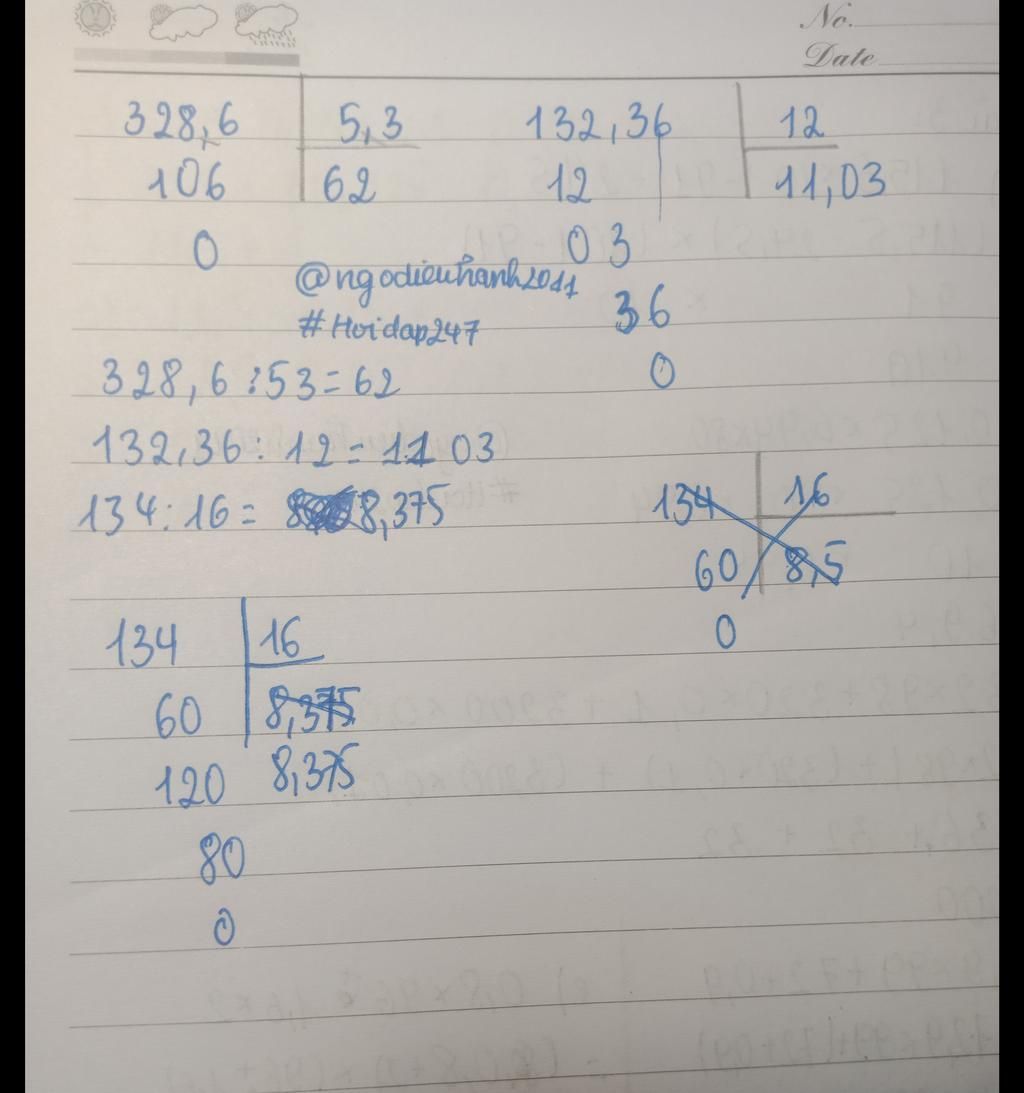 No.
Date
328,6 5,3
106 62
0
132,36 12
12 11,03
03
36
0
@ngodieuhanh2011
#Hoidap247
328,6 : 53 = 62
132,36 : 12 = 11 03
134 : 16 = 8,375
134 16
60 8,5
0
134 16
60 8,375
120 8,375
80
0